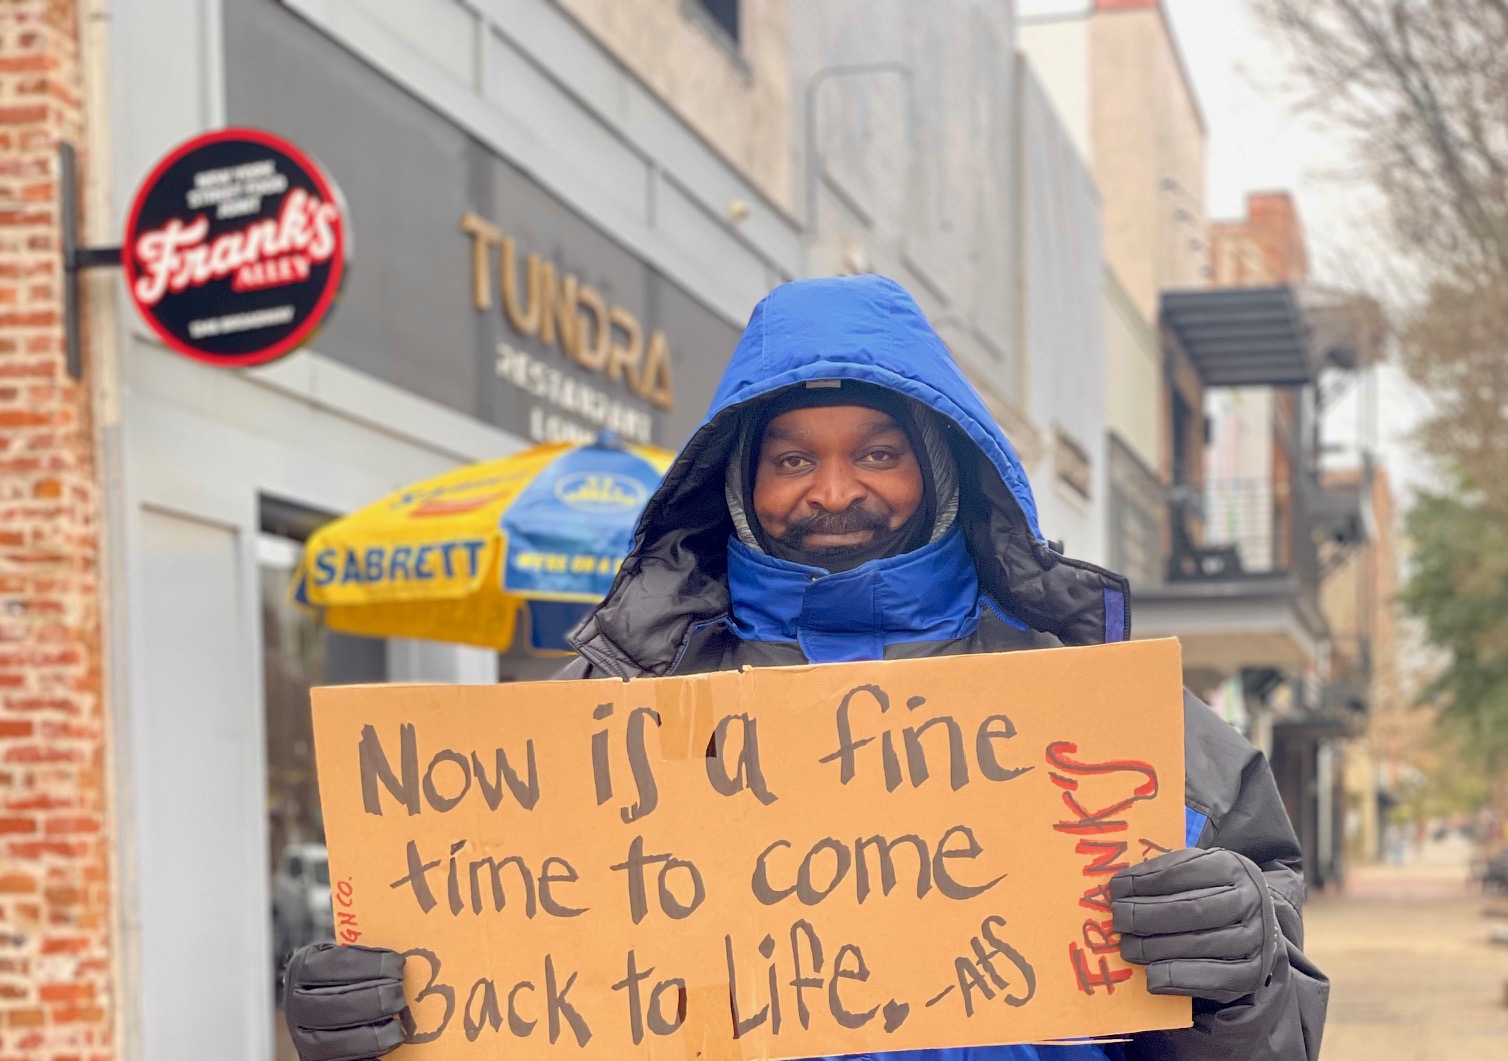 NEW YORK
STREET FOOD
JOINT
Frank's
ALLEY
TUNDRA
RESTAURANT
SABRETT
Now is a fine
time to come
Back to Life. -AHS
FRANK'S
GN CO.